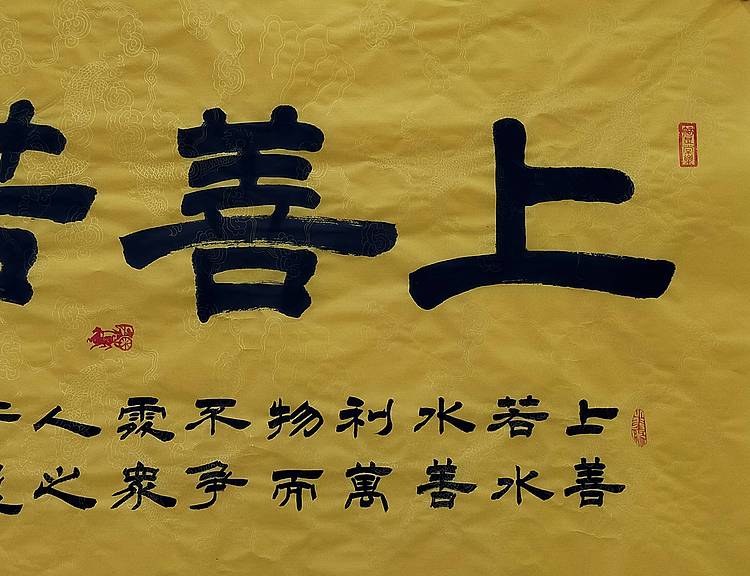 上善若
上善
若水
水善
利萬
物而
不爭
處衆
人之